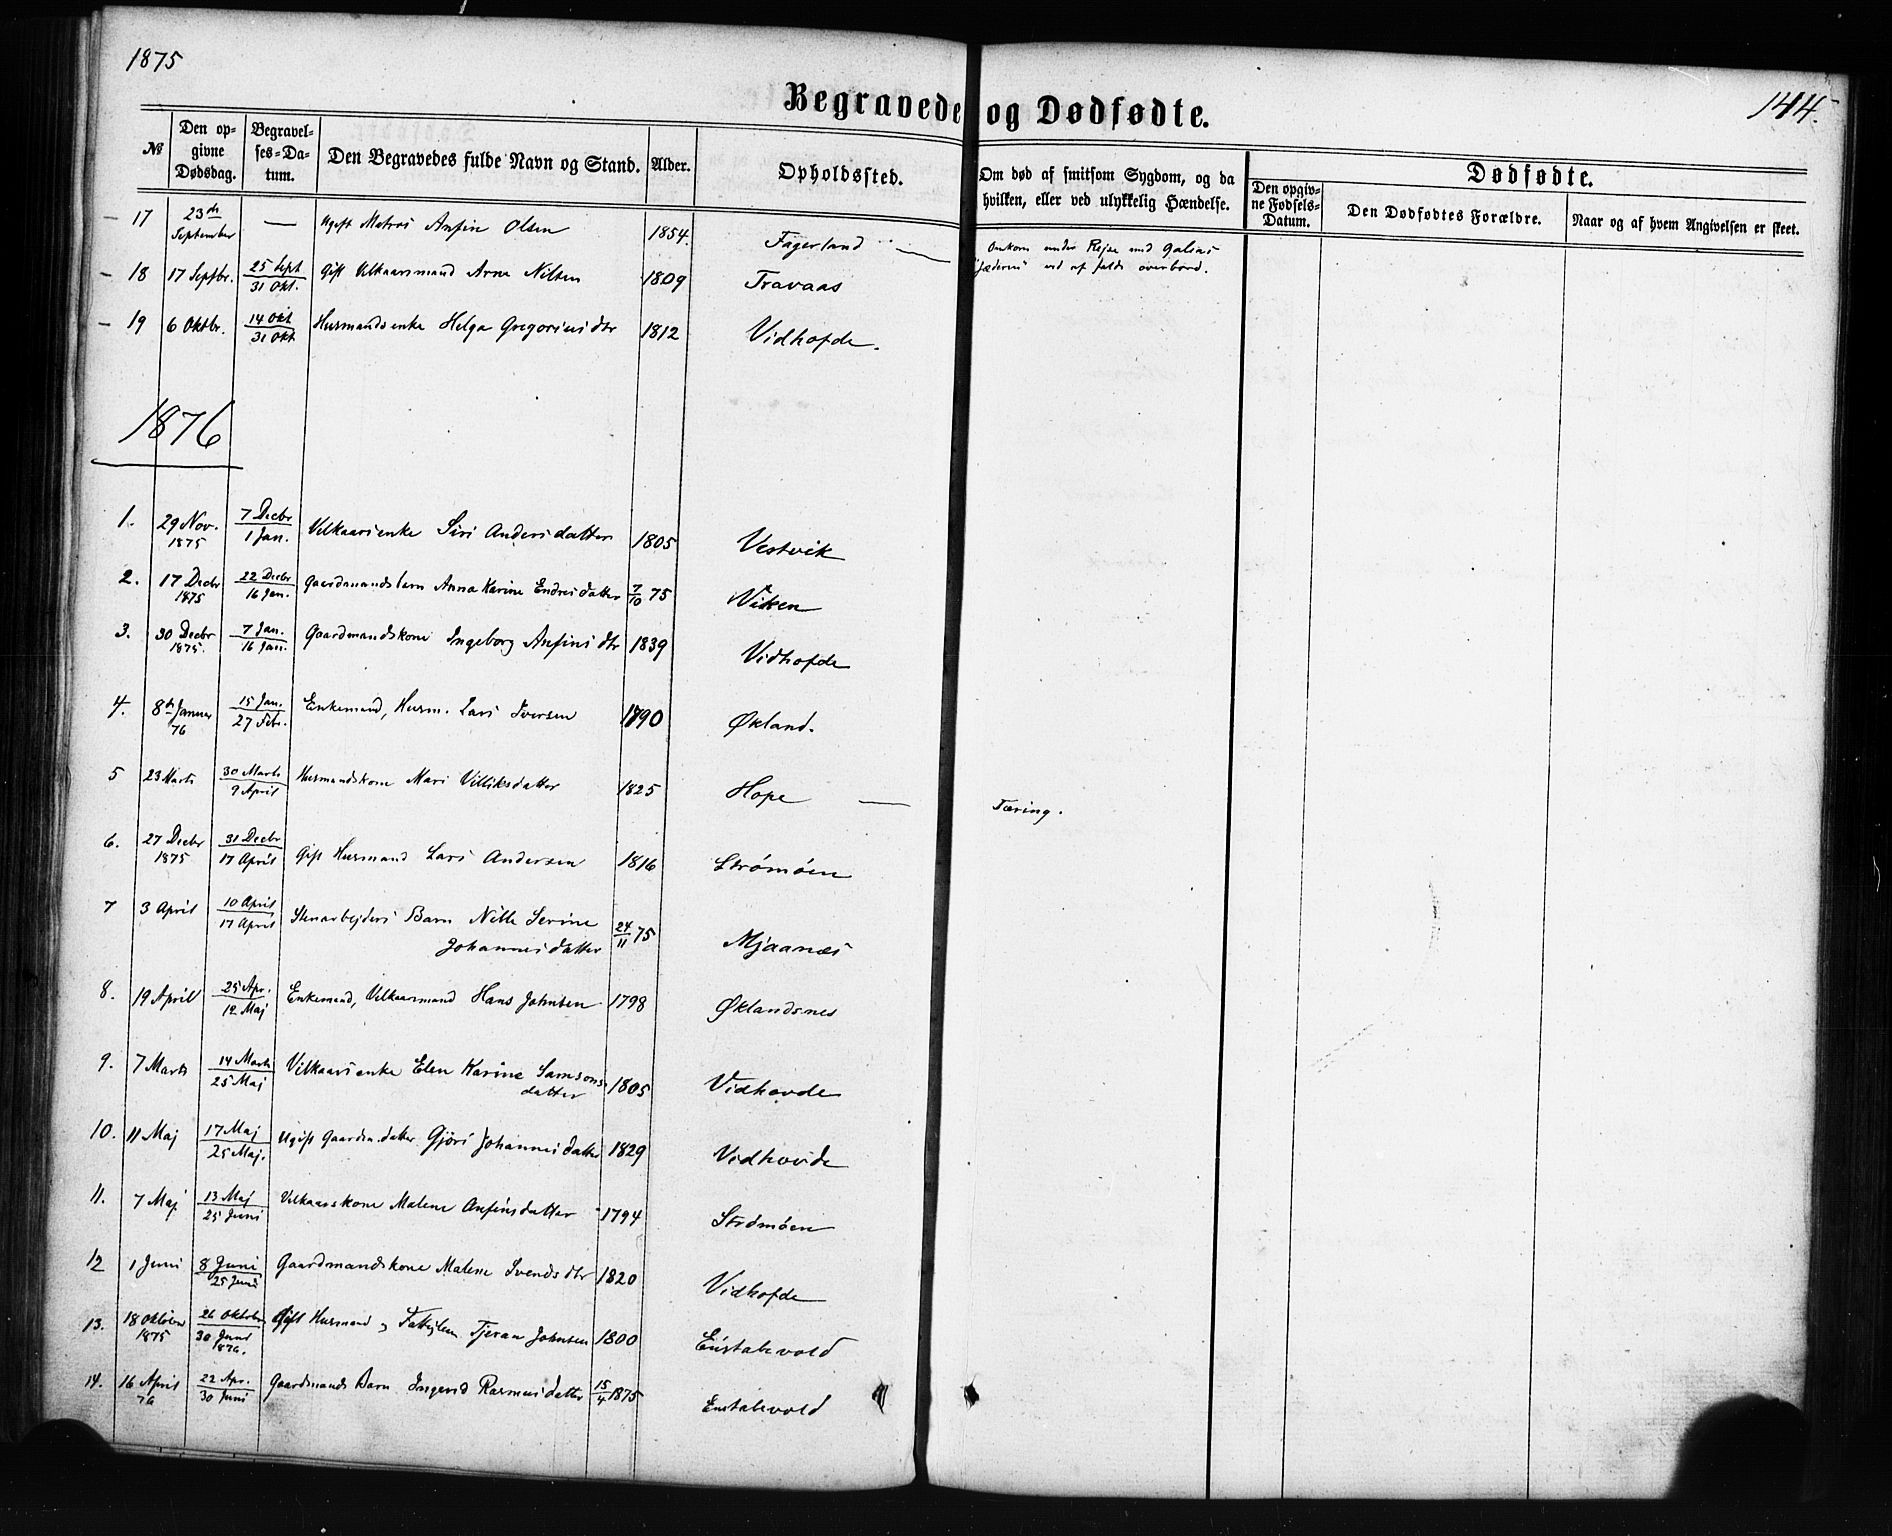 1875
144.
Begravede og Dødfødte.
№
Den opgivne Dødsdag.
Begravelses-Datum.
Den Begravedes fulde Navn og Stand.
Alder.
Opholdssted.
Om død af smitsom Sygdom, og da hvilken, eller ved ulykkelig Hændelse.
Dødfødte.
Den opgivne Fødsels-Datum.
Den Dødfødtes Forældre.
Naar og af hvem Angivelsen er skeet.
17 23de September — Ugift Matros Anfin Olsen 1854. Fagerland — Omkom under Rejse med Galeas "Jæderen" ved at falde overbord.
18 17 Septbr. 25 Sept 31 Okt. Gift Vilkaarsmand Arne Nilsen 1809 Travaas
19 6 Oktbr. 14 Okt 31 Okt Husmandsenke Helga Gregoriusdtr 1812 Vidhofde.
1876
1. 29 Nov. 1875 7 Decbr 1 Jan. Vilkaarsenke Siri Andersdatter 1805 Vestvik
2. 17 Decbr 1875 22 Decbr 16 Jan. Gaardmandsbarn Anna Karine Endresdatter 7/10 75 Viken
3. 30 Decbr 1875. 7 Jan. 16 Jan. Gaardmandskone Ingeborg Anfinsdtr 1839 Vidhofde
4. 8de Januar 76 15 Jan. 27 Febr. Enkemand, Husm. Lars Iversen 1790 Økland.
5 23 Marts 30 Marts 9 April Husmandskone Mari Villiksdatter 1825 Hope — Tæring.
6. 27 Decbr 1875 31 Decbr 17 April Gift Husmand Lars Andersen 1816 Strømøen
7 3 April 10 April 17 April Stenarbejders Barn Nille Serine
Johannesdatter 24/11 75 Mjaanæs
8. 19 April 25 Apr. 12 Maj Enkemand, Vilkaarsmand Hans Johnsen 1798 Øklandsnes
9. 7 Marts 14 Marts 25 Maj Vilkaarsenke Elen Karine Samsons
datter 1805 Vidhovde
10. 11 Maj 17 Maj 25 Maj. Ugift Gaardm.datter Gjøri Johannesdatter 1829 Vidhovde
11. 7 Maj 13 Maj 25 Juni Vilkaarskone Malene Anfinsdatter 1794 Strømøen
12 1 Juni 8 Juni 25 Juni Gaardmandskone Malene Svendsdtr 1820 Vidhofde
13. 18 Oktober 1875 26 Oktober 30 Juni 1876. Gift Husmand Tjeran Johnsen 1800 Enstabevold
14. 16 April 76 22 Apr. 30 Juni Gaardmands Barn Ingerid Rasmusdatter 15/4 1875 Enstabevold